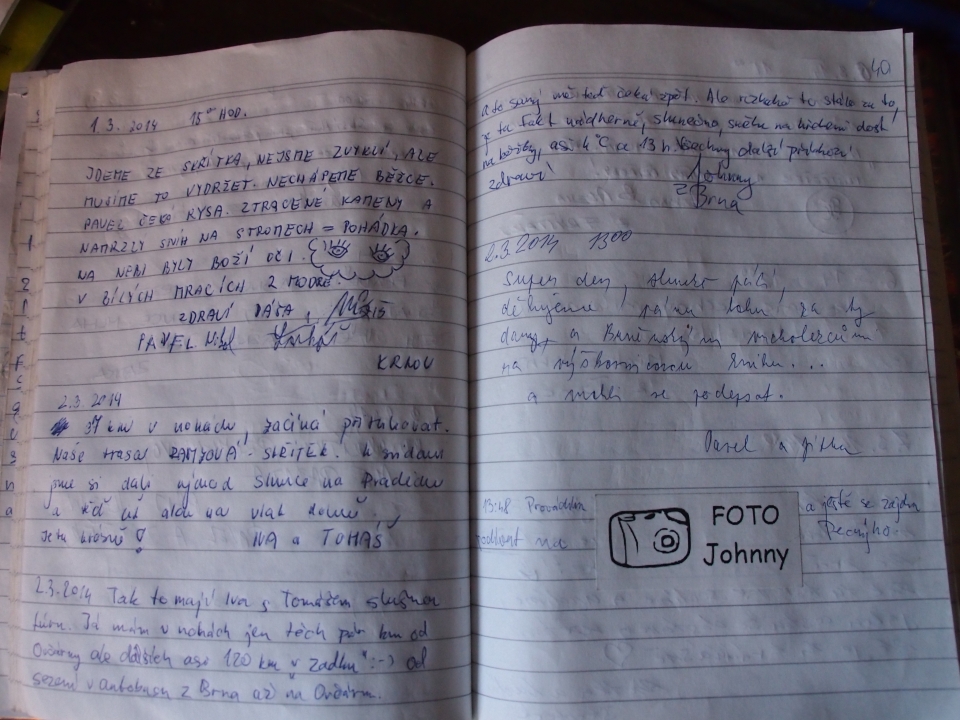 1.3. 2014 15 00 HOD.
JDEME ZE SKŘÍTKA, NEJSME ZVYKLÍ, ALE
MUSÍME TO VYDRŽET. NECHÁPEME BĚŽCE.
PAVEL ČEKÁ RYSA. ZTRACENÉ KAMENY A
NAMRZLÝ SNÍH NA STROMECH = POHÁDKA.
NA NEBI BYLY BOŽÍ OČI.
V BÍLÝCH MRACÍCH Z MODRÉ.
ZDRAVÍ DÁŠA,
PAVEL
KRNOV
2.3 2014
37 km v nohách, začíná přituhovat.
Naše trasa RAMZOVÁ - SKŘÍTEK. K snídani
jsme si dali východ slunce na Pradědu
a teď už na vlak domů.
Je to krásné!
IVA a TOMÁŠ
2.3.2014 Tak to mají Iva s Tomášem slušnou
túru. Já mám v nohách jen těch pár km od
Ovčárny ale dalších asi 120 km v "zadku" :-) od
sezení v autobusu z Brna až na Ovčárnu.
40
a to samý mě teď čeká zpět. Ale rozhodně to stálo za to,
je tu fakt nádherně, slunečno, sněhu na hřebeni dost
na běžky, asi 4°C ve 13 h. Všechny další příchozí
zdraví Johnny
z Brna
2.3.2014 1300
Super den, slunce pálí,
děkujeme pánu bohu za ty
dary, a Brněnským vrcholovcům
na výškovnicovou knihu...
a mohli se podepsat.
Pavel a Jitka
13:48 Provádím
a ještě se zajdu
podívat na
FOTO
Johnny
Pecného.